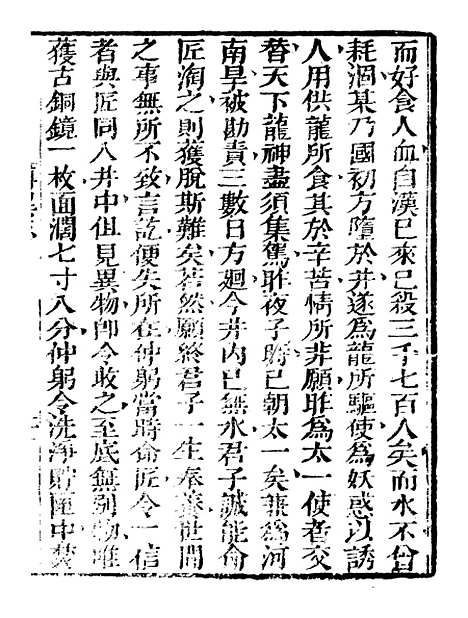 而好食人血自漢已來已殺三千七百人矣而水不曾
耗涸某乃國初方墮於井遂爲龍所驅使爲妖惑以誘
人用供龍所食其於辛苦情所非願昨爲太一使者交
替天下龍神盡須集駕昨夜子時已朝太一矣兼爲河
南旱被勘責三數日方廻今井內已無水君子誠能命
匠淘之則獲脫斯難矣若然願終君子一生奉養世間
之事無所不致言訖便失所在仲躬當時命匠令一信
者與匠同入井中但見異物卽令收之至底無別物唯
獲古銅鏡一枚面濶七寸八分仲躬令洗淨貯匣中焚